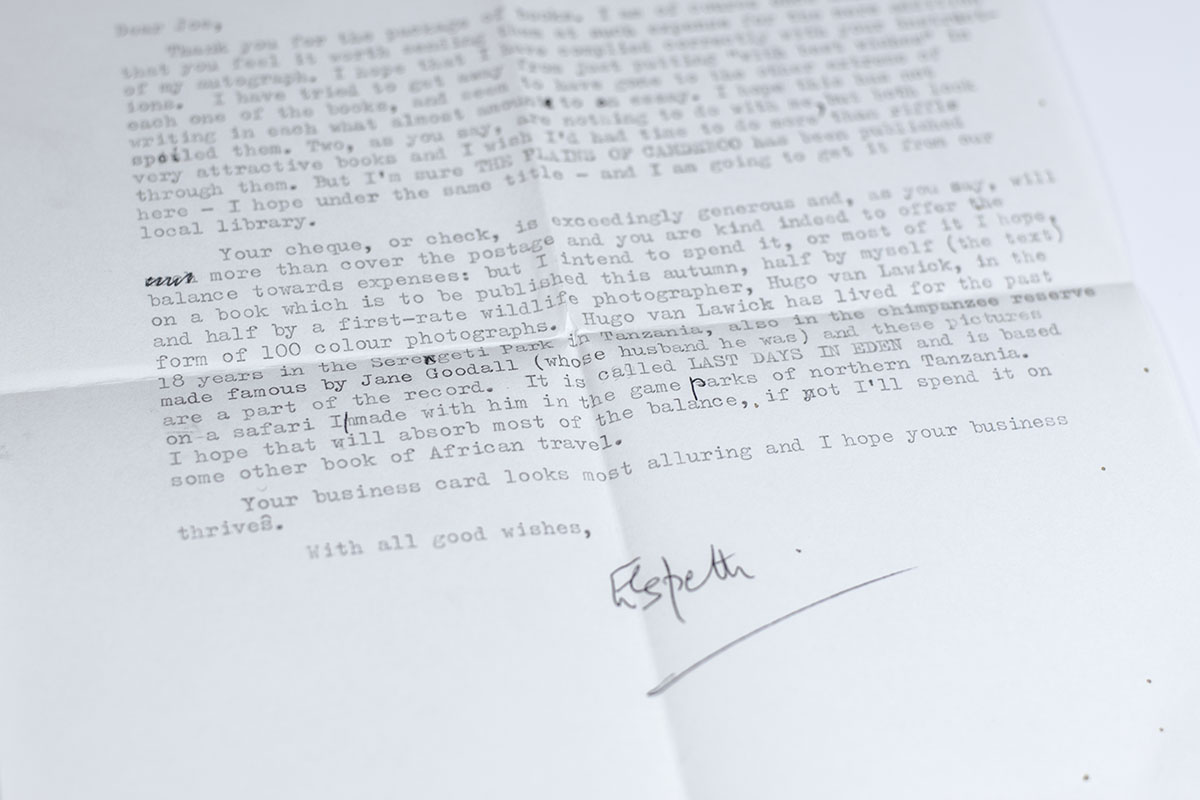 Dear Joe,
Thank you for the package of books. I am of course
that you feel it worth sending them at such expense for the mere addition
of my autograph. I hope that I have complied correctly with your instruct-
ions. I have tried to get away from just putting "with best wishes" in
each one of the books, and seem to have gone to the other extreme of
writing in each what almost amounts to an essay. I hope this has not
spoiled them. Two, as you say, are nothing to do with me, but both look
very attractive books and I wish I'd had time to do more than riffle
through them. But I'm sure THE PLAINS OF CAMDEBOO has been published
here — I hope under the same title — and I am going to get it from our
local library.
Your cheque, or check, is exceedingly generous and, as you say, will
more than cover the postage and you are kind indeed to offer the
balance towards expenses: but I intend to spend it, or most of it I hope,
on a book which is to be published this autumn, half by myself (the text)
and half by a first-rate wildlife photographer, Hugo van Lawick, in the
form of 100 colour photographs. Hugo van Lawick has lived for the past
18 years in the Serengeti Park in Tanzania, also in the chimpanzee reserve
made famous by Jane Goodall (whose husband he was) and these pictures
are a part of the record. It is called LAST DAYS IN EDEN and is based
on a safari I made with him in the game parks of northern Tanzania.
I hope that will absorb most of the balance, if not I'll spend it on
some other book of African travel.
Your business card looks most alluring and I hope your business
thrives.
With all good wishes,
Elspeth